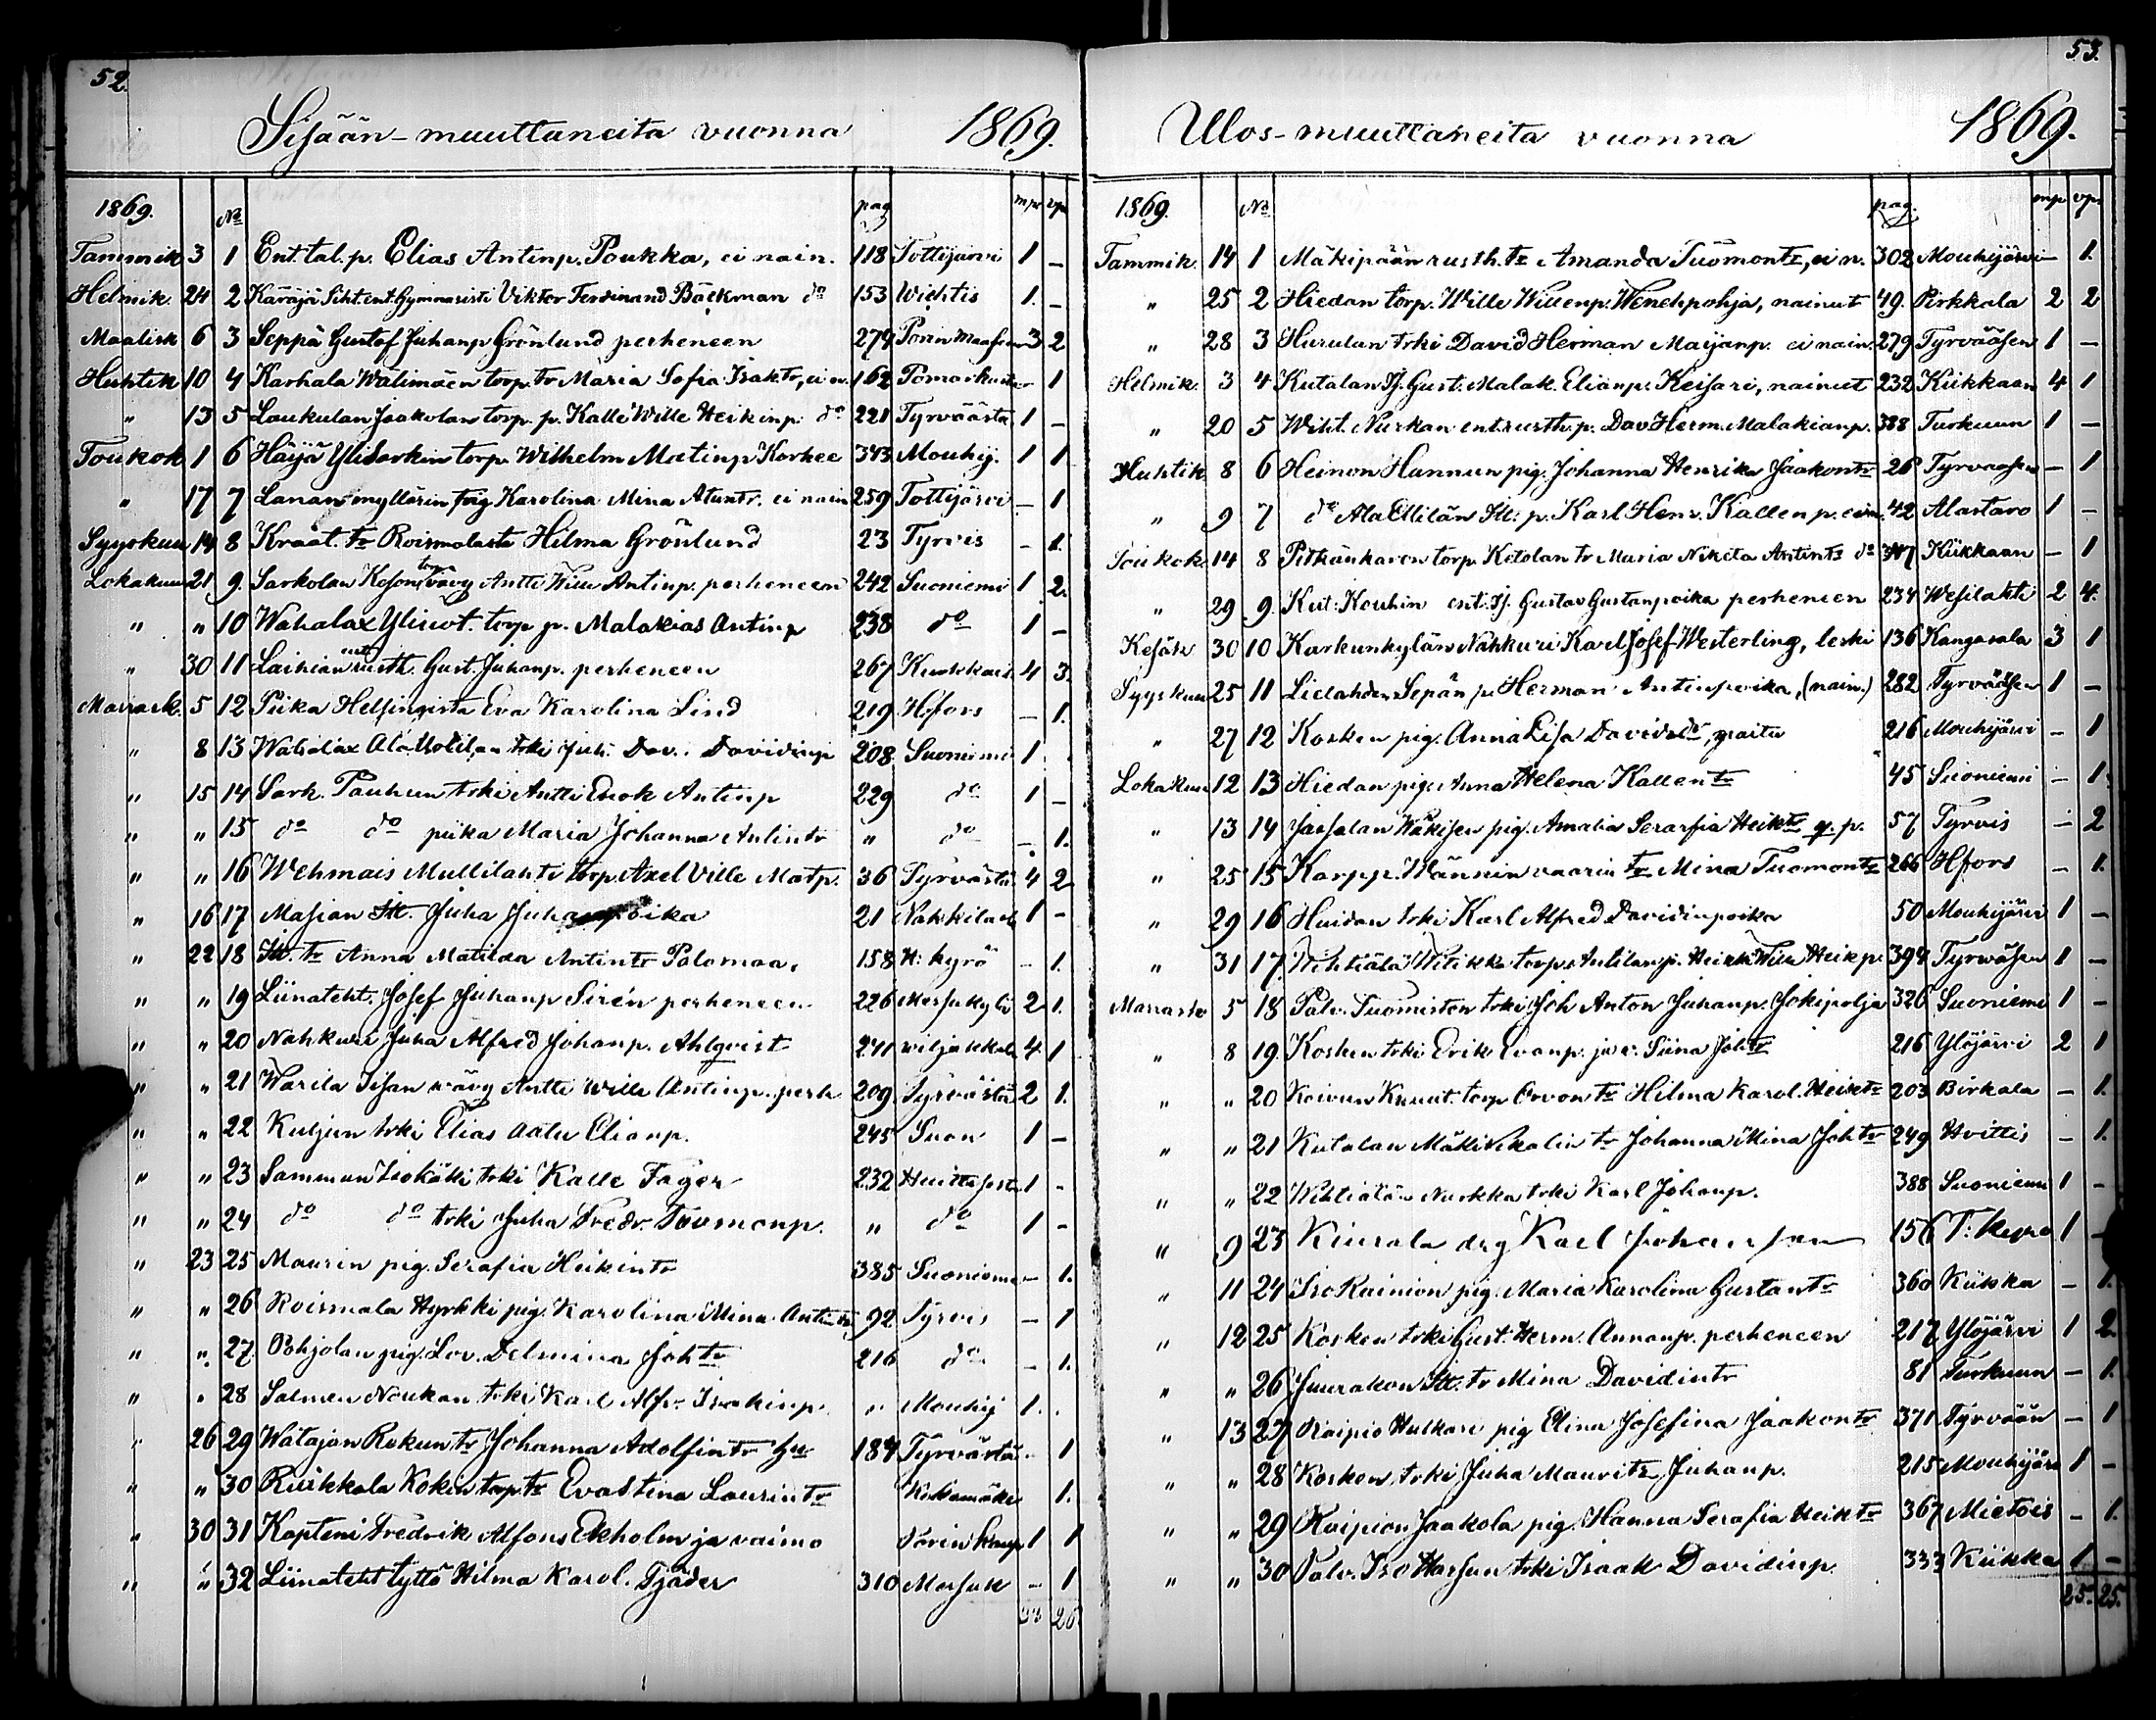 52.
Sisään-muuttaneita vuonna 1869.
1869. No pag mp. vp.
Tammik 3 1 Ent. tal. p. Elias Antinp. Poukka, ei nain. 118 Tottijärvi 1 –
Helmik. 24 2 Käräjä Siht. ent. Gymnasisti Viktor Ferdinand Bäckman do 153 Wichtis 1. –
Maalisk 6 3 Seppä Gustaf Juhanp Grönlund perheneen 279 Porin 3 2
Huhtik 10 4 Karhala Wälimäen torp. tr Maria Sofia Isaktr, ei n. 162 Pomarkusta – 1
" 13 5 Laukulan Jaakolan torp. p. Kalle Wille Heikinp. do 221 Tyrväästä 1 –
Toukok 1 6 Häijä Ylisorkin torp. Wilhelm Matinp Korkee 343 Mouhij. 1 1
" 17 7 Lanan myllärin pig Karolina Mina Atuntr. ei nain 259 Tottijärvi – 1
Syyskuu 14 8 Kraat. tr Roismalasta Hilma Grönlund 23 Tyrvis – 1.
Lokakuu 21 9. Sarkolan torp vävy Antti Wille Antinp. perheneen 242 Suoniemi 1 2.
" " 10 Wahalax torp p. Malakias Antinp 238 do 1 –
" 30 11 Laihian ent rusth. Gust. Juhanp. perheneen 267 4 3.
Marrask. 5 12 Piika Helsingista Eva Karolina Lind 219 H:fors – 1.
" 8 13 Wahalax trki Juh. Dav. Davidinp 208 Suoniemi 1
" 15 14 Sark. Pauhun trki Antti Enok Antinp 229 do 1 –
" " 15 do do piika Maria Johanna Antintr " do – 1.
" " 16 Wehmais Mullilahti torp. Axel Ville Matp. 36 Tyrväästä 4 2
" 16 17 Masian Itl. Juha Juhanpoika 21 Nakkilasta 1 –
" 22 18 Itl. tr Anna Matilda Antintr Palomaa. 158 H: kyrö – 1.
" " 19 Liinateht. Josef Juhanp Sirén perheneen 226 Messukylä 2 1.
" " 20 Nahkuri Juha Alfred Johanp. Ahlqvist 241 wiljakkala 4 1
" " 21 Warila vävy Antti Wille Antinp. perh. 209. Tyrväästä 2 1.
" " 22 Kuljun trki Elias Aatu Elianp. 245 Suon 1 –
" " 23 Sammun trki Kalle Fager 232 1 -
" " 24 do do trki Juha Fredr. Tuomonp. " do 1 -
" 23 25 Maurin pig. Serafia Heikintr 385 Suoniemi – 1.
" " 26 Roismala Hyrkki pig. Karolina Mina Antintr 92 Tyrvis – 1
" " 27. Pohjolan pig. Lov. Delmina Johtr 216 do – 1.
" " 28 Salmen Noukan trki Karl Alfr. Isakinp. " Mouhij 1. .
" 26 29 Watajan Rekun tr Johanna Adolfintr 184 Tyrväästä 1
" " 30 Ruikkala Kokin torp. tr Eva Stina Laurintr Kokemäki 1.
" 30 31 Kapteni Fredrik Alfons Ekholm ja vaimo Porin kaup 1 1
" " 32 Liinateht tyttö Hilma Karol. Tjäder 310 Messuk – 1
26
53.
Ulos-muuttaneita vuonna 1869.
1869. No pag. mp vp.
Tammik. 14 1 Mäkipään rusth. tr Amanda Tuomontr, ei n. 302 Mouhijärvi – 1.
" 25 2 Hiedan torp. Wille Willenp. Wenehpohja, nainut 49. Pirkkala 2 2
" 28 3 Hurulan trki David Herman Maijanp. ei nain. 279 Tyrvääsen 1 –
Helmik. 3 4 Kutalan Gust. Malak. Elianp. Keisari, nainut 232 Kiikkaan 4 1
" 20 5 Wiht. Nurkan ent. rusth. p. Dav. Herm. Malakianp. 388 Turkuun 1 –
Huhtik 8 6 Heinon Hannun pig. Johanna Henrika Jaakontr 26 Tyrvääsen – 1
" 9 7 do Itl. p. Karl Henr. Kallenp. 42 Alastaro 1 –
Toukok. 14 8 Pitkänkaron torp. Ketolan tr Maria Nikita Antintr do Kiikkaan – 1
" 29 9. Kut. Kouhin ent. Gustav Gustanpoika perheneen 234 Wesilahti 2 4.
Kesäk 30 10 Karkunkylän Nahkuri Karl Josef Westerling, leski 136 Kangasala 3 1
Syyskuu 25 11 Lielahden Sepän p. Herman Antinpoika, (nain.) 282 Tyrvääsen 1 –
" 27 12 Kosken pig. Anna Lisa 216 Mouhijärvi – 1
Lokakuu 12 13 Hiedan pig. Anna Helena Kallentr 45 Suoniemi – 1.
" 13 14 Jaskalan pig. Amalia Serafia Heiktr 57 Tyrvis – 2
" 25 15 Karpp. Männin vaarin tr Mina Tuomontr 266 Hfors – 1.
" 29 16 Huidan trki Karl Alfred Davidinpoika 50 Mouhijärvi 1 –
" 31 17 Wihtiälä torp. Heikki Wille Heikp. 394 Tyrvääsen 1 –
Marrask 5 18 Palv. Tuomisten trki Joh Anton Juhanp. Jokipolja 326 Suoniemi 1 –
" 8 19 Kosken trki Erik Evanp. ja v. Siina Johtr 216 Ylöjärvi 2 1
" " 20 Koivun torp Hilma Karol. Heiktr 203 Birkala – 1.
" " 21 Kutalan tr Johanna Mina Johtr 249 Hvittis – 1.
" " 22 Wihtiälän Nurkka trki Karl Johanp. 388 Suoniemi 1 –
" 9 23 Kiurala drg Karl Johansson 156 1 –
" 11 24 Iso Rainion pig. Maria Karolina Gustantr 360 Kiikka – 1.
" 12 25 Kosken trki Gust. Herm. Annanp. perheneen 217 Ylöjärvi 1 2.
" " 26 Juurakon Itl. tr Mina Davidintr 81 Turkuun – 1.
" 13 27 Raipio Hulkari pig Elina Josefina Jaakontr 371 Tyrvään – 1
" " 28 Kosken trki Juha Mauritz Juhanp. 215 Mouhijärv 1 –
" " 29 Raipion Jaakola pig. Hanna Serafia Heiktr 367 Mietois – 1.
" " 30 Palv. Iso Hassun trki Isaak Davidinp. 333 Kiikka 1 –
25. 25.